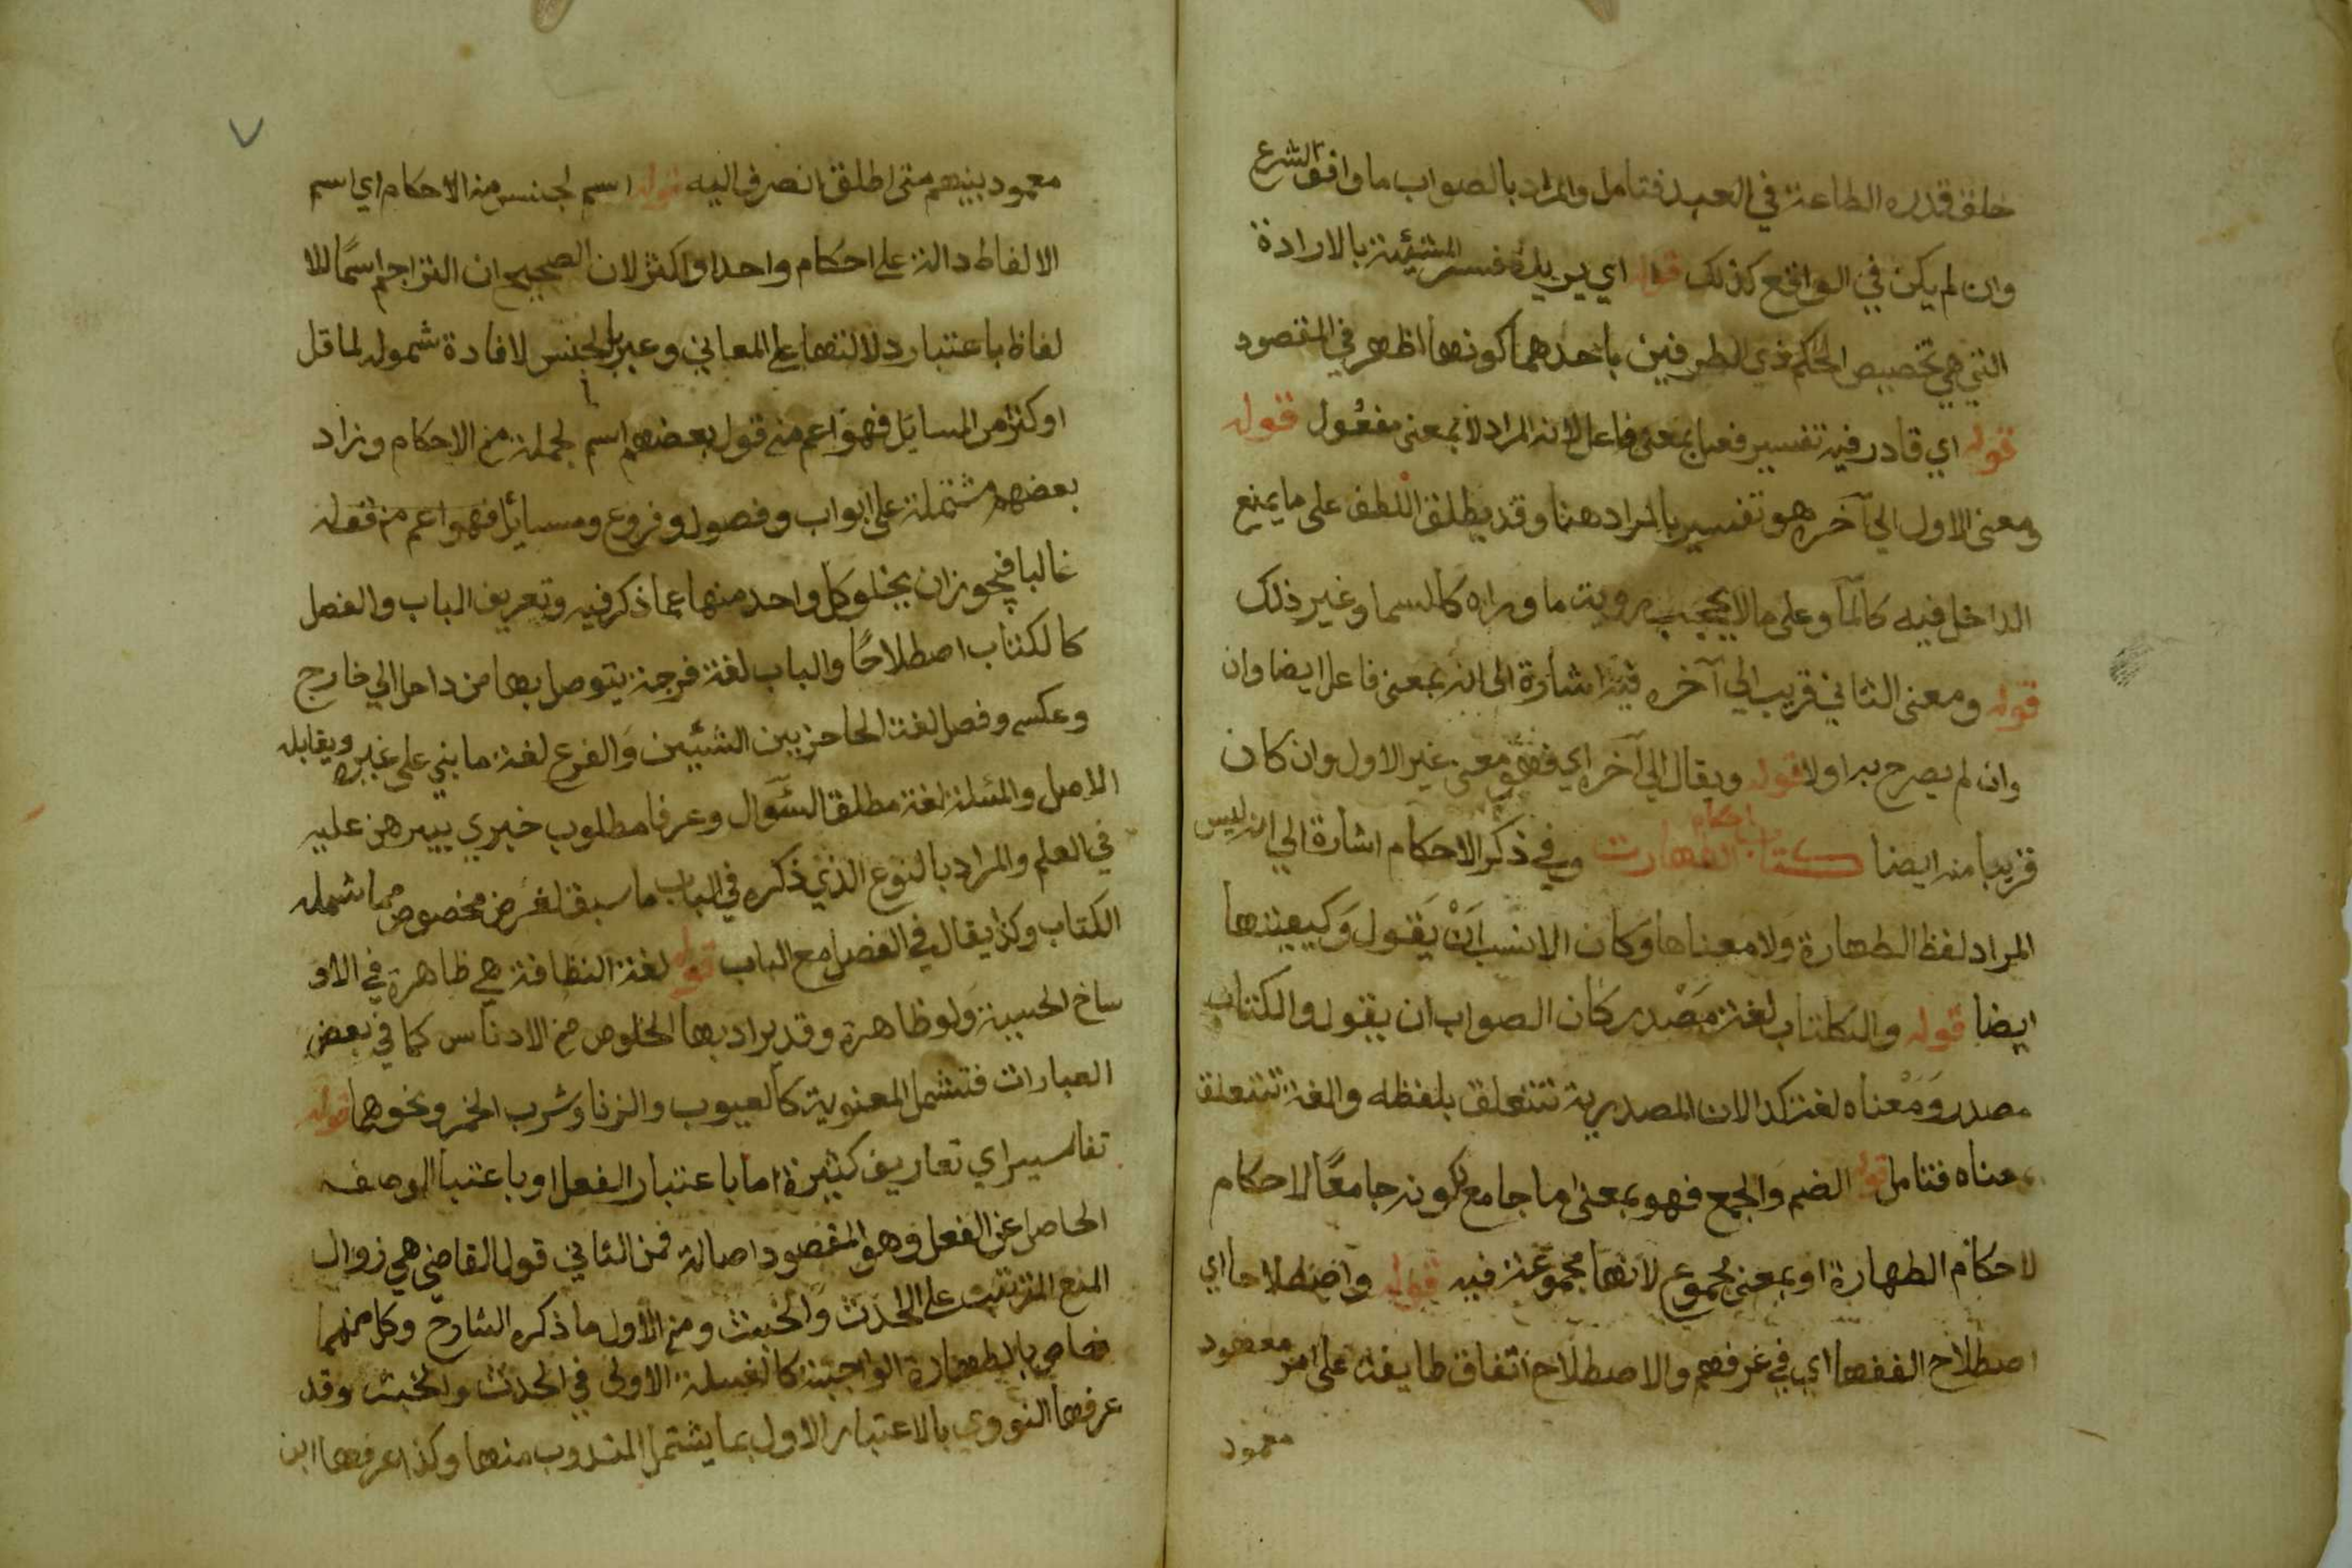 خلق قدره الطاعة في العبد فتامل والمراد بالصواب ما وافق الشرع
وان لم يكن في الواقع كذلك قوله اي يريد فسر المشيئة بالارادة
التي هي تخصيص الحكم ذي الطرفين باحدهما كونها اظهر في المقصود
قوله اي قادر فيه تفسير فعيل بمعنى فاعل لانه المراد لا بمعنى مفعول قوله
ومعنى الاول الي آخره هو تفسير بالمراد هنا وقد يطلق اللطف على ما يمنع
الداخل فيه كالمآ وعلى ما لا يحجب روية ما وراه كالسما وغير ذلك
قوله ومعنى الثاني قريب الي آخره فيه اشارة الى انه بمعنى فاعل ايضا وان
وان لم يصرح به اولا قوله ويقال الي آخره اي فهو معنى غير الاول وان كان
قريبا منه ايضا كتاب احكام الطهارت وفي ذكر الاحكام اشارة الي انه ليس
المراد لفظ الطهارة ولا معناها وكان الانسب اَنْ يَقول وكيفيتها
ايضا قوله والكتاب لغة مَصْدر كان الصواب ان يقول والكتاب
مصدر وَمَعْناه لغة كذا لان المصدرية تتعلق بلفظه واللغة تتعلق
بمعناه فتامل قوله الضم والجمع فهو بمعنى اما جامع لكونه جامعًا لاحكام
لاحكام الطهارة او بمعنى مجموع لانها مجموعة فيه قوله واصطلاحا اي
اصطلاح الفقها اي في عرفهم والاصطلاح اتفاق طايفة على امر معهود
معهود
٧
معهود بينهم متى اطلق انصرف اليه قوله اسم لجنس من الاحكام اي اسم
الالفاظ دالة على احكام واحدا واكثر لان الصحيح ان التراجم اسمًا للا
لفاظ باعتبار دلالتها على المعاني وعبر بالجنس لافادة شموله لما قل
او كثر من المسايل فهو اعم من قول بعضهم اسم لجملة من الاحكام وزاد
بعضهم مشتملة على ابواب وفصول وفروع ومسائل فهو اعم من قوله
غالبا فيجوز ان يخلو كل واحد منها عما ذكر فيه وتعريف الباب والفصل
كالكتاب اصطلاحًا والباب لغة فرجة يتوصل بها من داخل الي خارج
وعكسه وفصل لغة الحاجز بين الشيئين وَالفرع لغة ما بني على غيره ويقابله
الاصل والمسئلة لغة مطلق السَّوال وعرفا مطلوب خبري يبرهن عليه
في العلم والمراد بالنوع الذي ذكره في الباب ما سبق لغرض مخصوص مما شمله
الكتاب وكذا يقال في الفصل مع الباب قوله لغة النظافة هي ظاهرة في الاو
ساخ الحسية ولو ظاهرة وقد يراد بها الخلوص من الادناس كما في بعض
العبارات فتشمل المعنوية كالعيوب والزنا وشرب الخمر ونحوها قوله
تفاسير اي تعاريف كثيرة اما باعتبار الفعل او باعتبا الوصف
الحاصل عن الفعل وهو المقصود اصالة فمن الثاني قول القاضي هي زوال
المنع المترتب على الحدث والخبث ومن الأول ما ذكره الشارح وكل منهما
خاص بالطهارة الواجبة كالغسلة الاولى في الحدث والخبث وقد
عرفها النووي بالاعتبار الاول بما يشتمل المندوب منها وكذا عرفها ابن